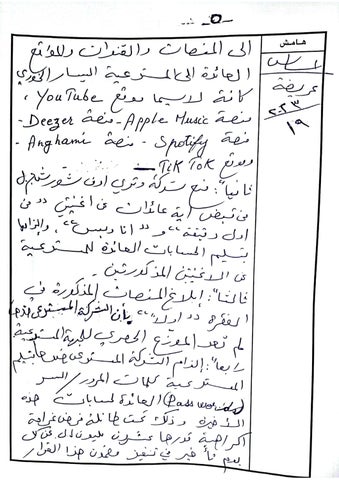 - 5 -
هامش
عريضة
٢٢٣
١٩
الى المنصات والقنوات والمواقع
العائدة الى المستدعية اليسار الخوري
كافة لا سيما موقع YouTube،
منصة Apple Music - منصة Deezer -
منصة Spotify - منصة Anghami
وموقع TikTok
ثانيا": منع شركة وتري اوف شور ش.م.ل
من قبض اية عائدات عن اغنيتي "من
اول دقيقة" و "انا وبس"، والزامها
بتسليم الحسابات العائدة للمستدعية
عن الاغنيتين المذكورتين.
ثالثا": ابلاغ المنصات المذكورة في
الفقرة "اولا" بان الشركة المستدعى ضدها
لم تعد الموزع الحصري للجهة المستدعية
رابعا": الزام الشركة المستدعى ضدها بتسليم
المستدعية كلمات المرور/السر
(Passwords) العائدة لحسابات هذه
الاخيرة وذلك تحت طائلة فرض غرامة
اكراهية قدرها عشرين مليون ل.ل. عن كل
يوم تأخير في تنفيذ مضمون هذا القرار